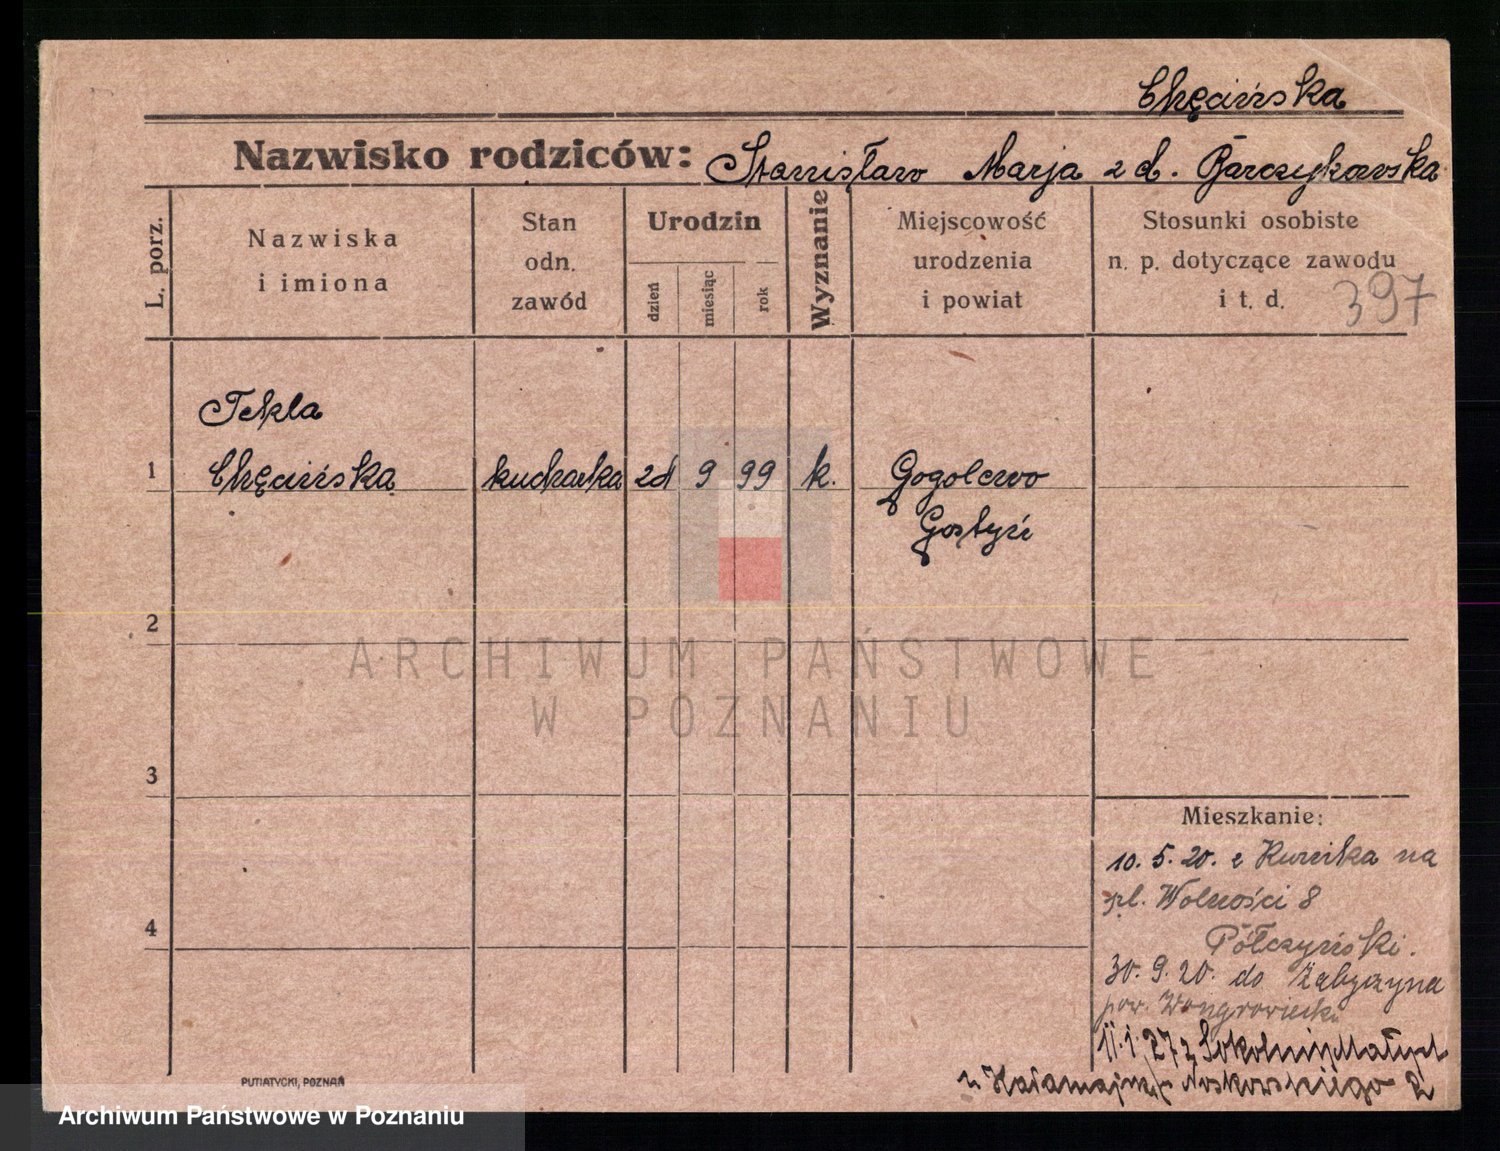 Chęcińska
Nazwisko rodziców: Stanisław Marja z d. Parczykowska
L. porz.
Nazwiska
i imiona
Stan
odn.
zawód
Urodzin
dzień
miesiąc
rok
Wyznanie
Miejscowość
urodzenia
i powiat
Stosunki osobiste
n. p. dotyczące zawodu
i t. d.
397
Tekla
1 Chęcińska kucharka 24 9 99 k. Gogolewo
Gostyń
2
3
4
Mieszkanie:
10. 5. 20. z Kurnika na
pl. Wolności 8
Półczyński.
30. 9. 20. do Żabyczyna
pow. Wongrowiecki
11. 1. 27 z Sokolniki Małych
Noskowskiego 2
PUTIATYCKI, POZNAŃ
ARCHIWUM PAŃSTWOWE
W POZNANIU
Archiwum Państwowe w Poznaniu